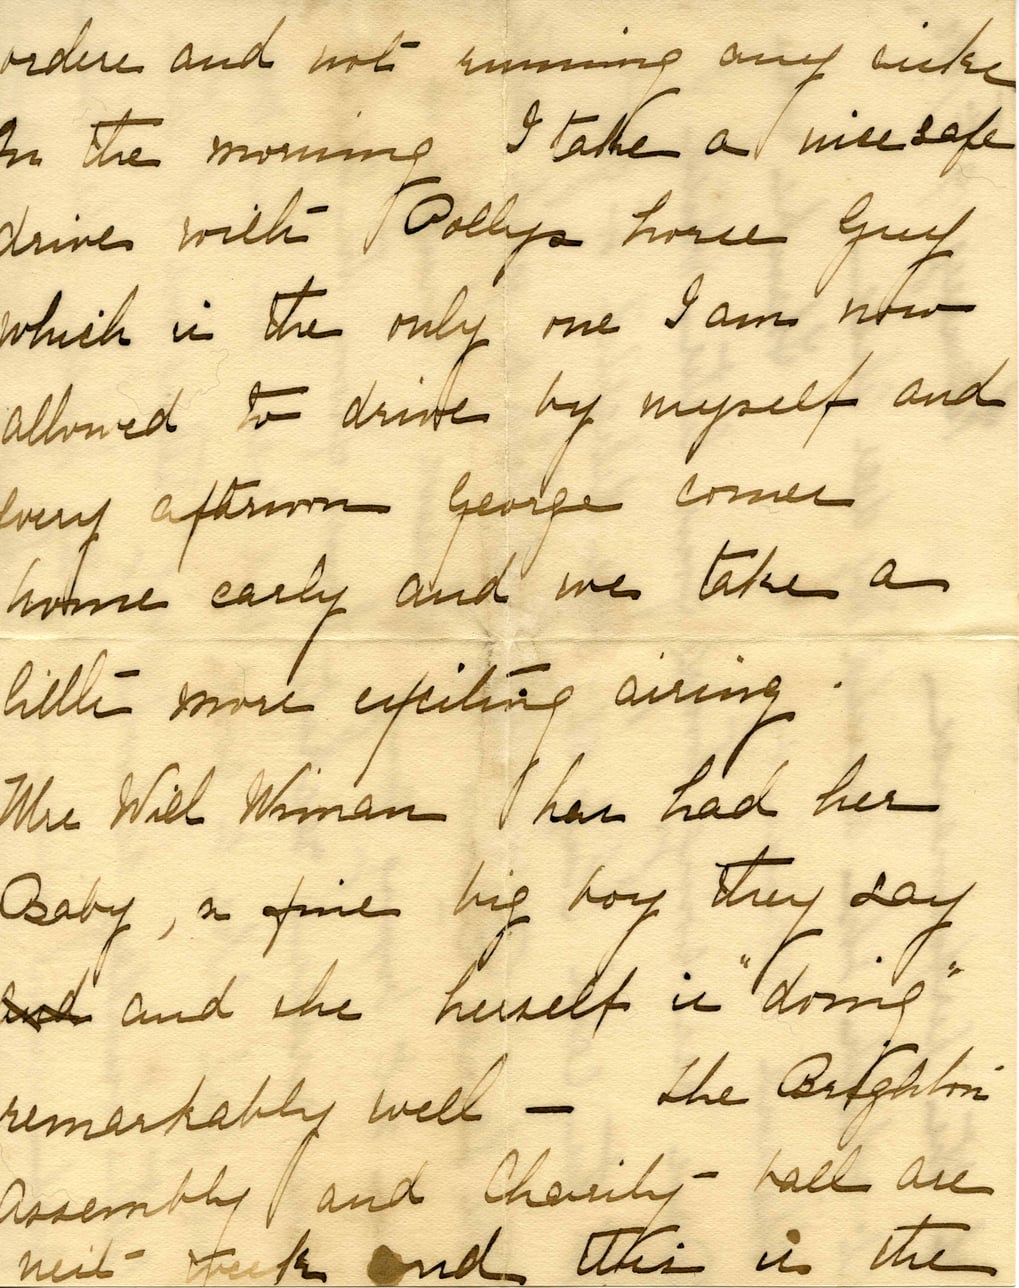 orders and not running any risks
In the morning I take a nice safe
drive with Pollys horse Guy
which is the only one I am now
allowed to drive by myself and
every afternoon George comes
home early and we take a
little more exciting airing.
Mrs Will Wiman has had her
Baby, a fine big boy they say
and and she herself is "doing"
remarkably well — The Brighton
Assembly and Charity ball are
next week and this is the